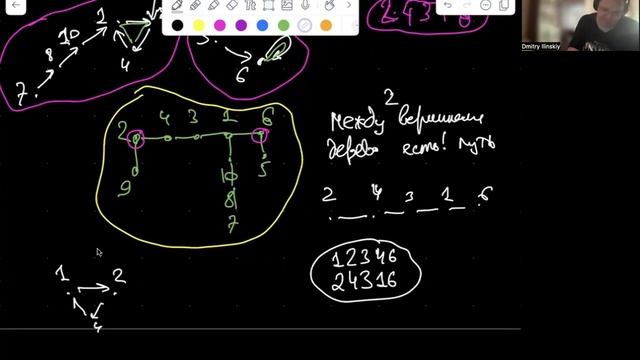 1
2 4 3 1 6
10
8
4
7
6
Dmitry Ilinskiy
2 4 3 1 6
9 10 5
8
7
между 2 вершинами
дерева есть! путь
2 4 3 1 6
1 2 3 4 6
2 4 3 1 6
1 2
4